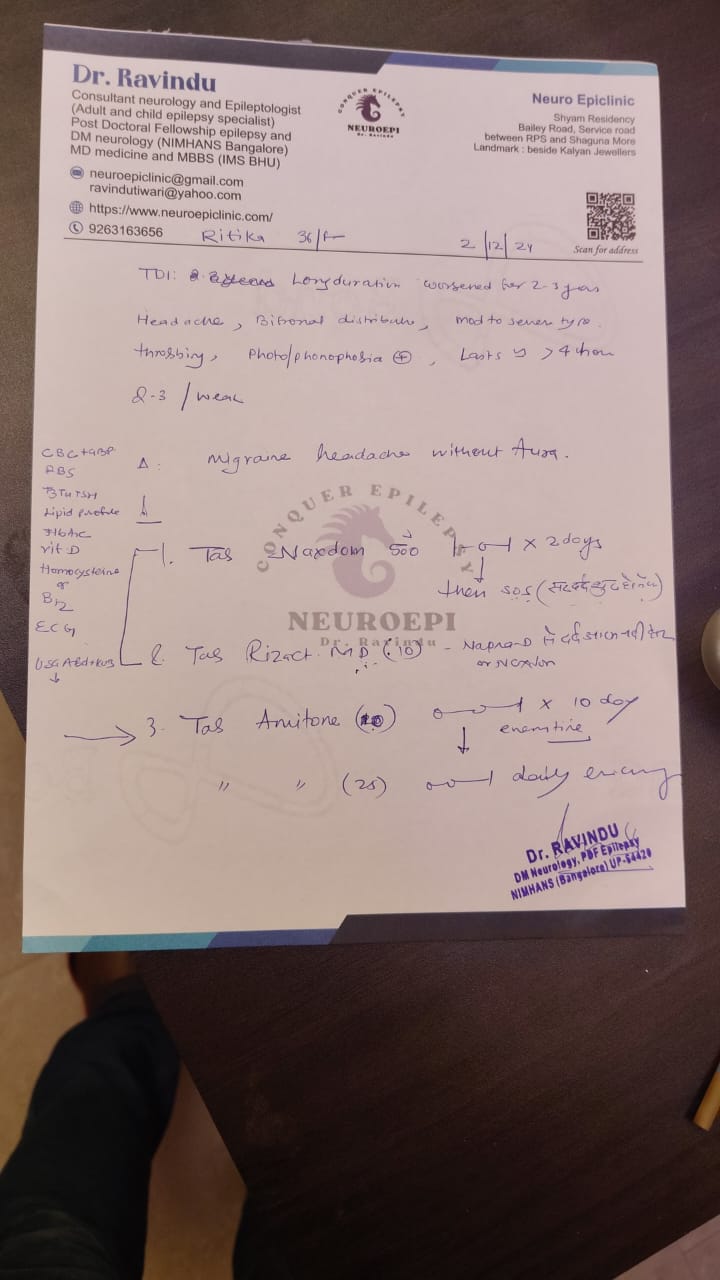 Dr. Ravindu
Consultant neurology and Epileptologist
(Adult and child epilepsy specialist)
Post Doctoral Fellowship epilepsy and
DM neurology (NIMHANS Bangalore)
MD medicine and MBBS (IMS BHU)
neuroepiclinic@gmail.com
ravindutiwari@yahoo.com
https://www.neuroepiclinic.com/
9263163656
CONQUER EPILEPSY
NEUROEPI
Dr. Ravindu
Neuro Epiclinic
Shyam Residency
Bailey Road, Service road
between RPS and Shaguna More
Landmark : beside Kalyan Jewellers
Scan for address
Ritika 36/F
2/12/24
Long duration worsened for 2-3 years
Headache, distribute, mod to severe type
throbbing, Photo/phonophobia ⊕, Lasts >4 hour
2-3 / weak
Δ: Migraine headache without Aura.
RBS
Lipid profile
HbA1c
vit D
Homocysteine
B12
ECG
1. Tab Naxdom 500 1-0-1 x 2 days
↓
then SOS
CONQUER EPILEPSY
NEUROEPI
Dr. Ravindu
2. Tab Rizact MD (10) -
3. Tab Amitone (10) 0-0-1 x 10 day
↓
" " (25) 0-0-1 daily
Dr. RAVINDU
DM Neurology, PDF Epilepsy
NIMHANS (Bangalore) UP-64420